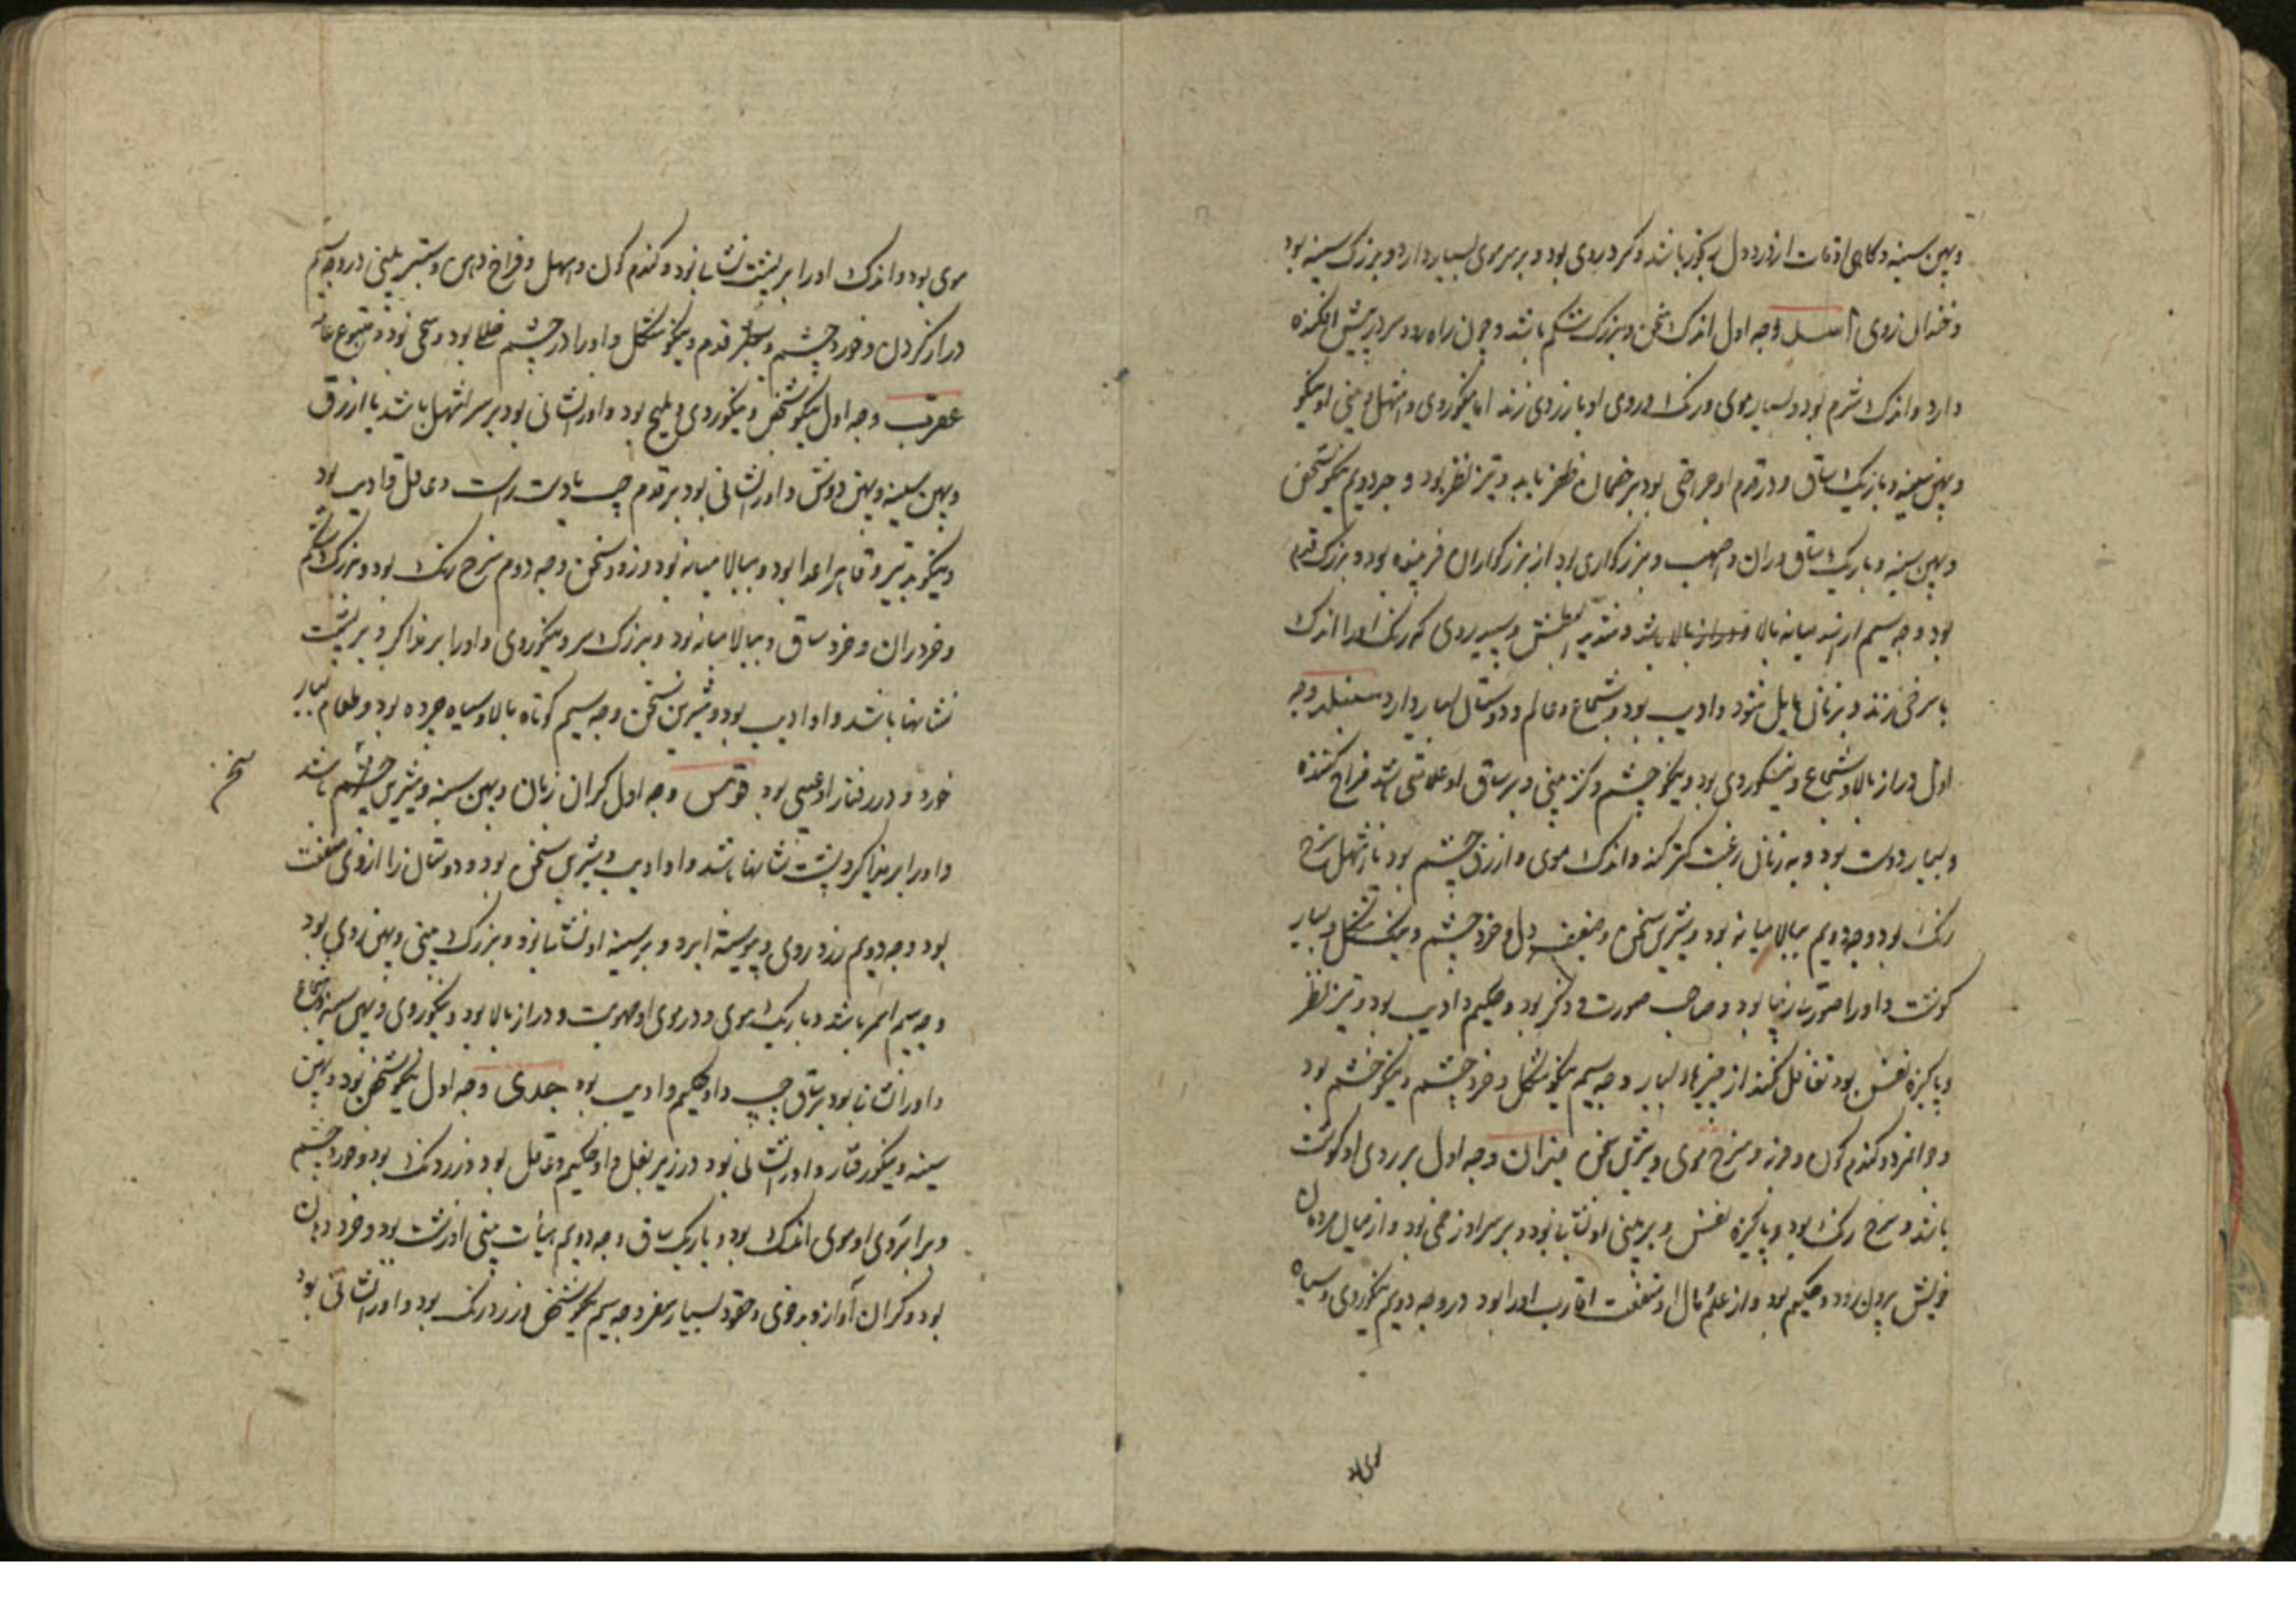 وپهن سینه وکاهی اوقات از درد دل رنجور باشد وکرد روی بود وبر سر موی بسیار دارد وبزرک سینه بود
وخندان روی اسد وجه اول اندک سخن وبزرک شکم باشد وچون راه رود سر در پیش افکنده
دارد واندک شرم بود وبسیار موی ورنک روی او بازردی زند اما نیکوروی واشهل وبینی او نیکو
وپهن سینه وباریک ساق ودر قدم او جراحتی بود بر خصمان ظفر یابد وتیز نظر بود وجه دویم نیکو شخص
وپهن سینه وباریک ساق وران واصهب وبزرکواری بود از بزرکواران فریفته بود وبزرک قدم
بود وجه سیم ارزند میانه بالا ودراز بالا باشد وسپید روی که رنک او را اندک
با سرخی زند وبزنان مایل شود وادیب بود وشجاع وعالم ودوستان بسیار دارد سنبله وجه
اول دراز بالا وشجاع ونیکوروی بود ونیکو چشم وکژ بینی وبر ساق او علامتی باشد فراخ کننده
وبسیار دوست بود وبه زنان رغبت کمتر کند واندک موی وازرق چشم بود یا اشهل سرخ
رنک بود وجه دویم ببالا میانه بود وشیرین سخن وضعیف دل وخرد چشم ونیک شکل وبسیار
کوشت واورا صورت زیبا بود وصاحب صورت وذکر بود وحکیم وادیب بود وتیز نظر
وپاکیزه نفس بود تغافل کند از چیزها بسیار وجه سیم نیکو شکل وخرد چشم ونیکو چشم بود
وجوانمرد وکندم کون وفربه وسرخ موی وشیرین سخن میزان وجه اول بر روی او کوشت
باشد وسرخ رنک بود وپاکیزه نفس وبر بینی او نشانها بود وبر سر او زخمی بود واز میان مردمان
خویش برون رود وحکیم بود واز علم مال او منفعت اقارب اورا بود در وجه دویم نیکوروی وسیاه
موی بود
موی بود واندک اورا بر پشت نشانها بود وکندم کون واشهل وفراخ دهن وستبر بینی در وجه سیم
دراز کردن وخورد چشم وسطبر قدم ونیکو شکل واورا در چشم خللها بود وسخی بود ومتبوع عامه
عقرب وجه اول نیکو شخص ونیکوروی وملیح بود واورا نشانی بود بر سر اشهل باشد یا ازرق
وپهن سینه وپهن دوش واورا نشانی بود بر قدم چپ یا دست راست وعاقل وادیب بود
ونیکو تدبیر وقاهر اعدا بود وببالا میانه بود وزود سخن وجه دوم سرخ رنک بود وبزرک شکم
وخرد ران وخرد ساق وببالا میانه بود وبزرک سر ونیکوروی واورا بر مذاکر وبر پشت
نشانها باشد واو ادیب بود وشیرین سخن وجه سیم کوتاه بالا وسیاه چرده بود وطعام بسیار
خورد ودر رفتار او عیبی بود قوس وجه اول کران زبان وپهن سینه وشیرین چشم باشد
سخن
واورا بر مذاکر وپشت نشانها باشد واو ادیب وشیرین سخن بود ودوستان را از وی منفعت
بود وجه دویم زرد روی وپیوسته ابرو وبر سینه او نشانها بود وبزرک بینی وپهن روی بود
وجه سیم اسمر باشد وباریک موی ودر موی او صهوبت ودراز بالا بود ونیکوروی وپهن سینه وشجاع
واورا نشانها بود بر ساق چپ واو حکیم وادیب بود جدی وجه اول نیکو شخص بود وپهن
سینه ونیکو رفتار واورا نشانی بود در زیر بغل واو حکیم وعاقل بود وزرد رنک بود وخورد چشم
وبر ابروی او موی اندک بود وباریک ساق وجه دویم هیأت بینی او زشت بود وخرد دهان
بود وکران آواز وبدخوی وحقود بسیار سفر وجه سیم نیکو شخص وزرد رنک بود واورا نشانی بود